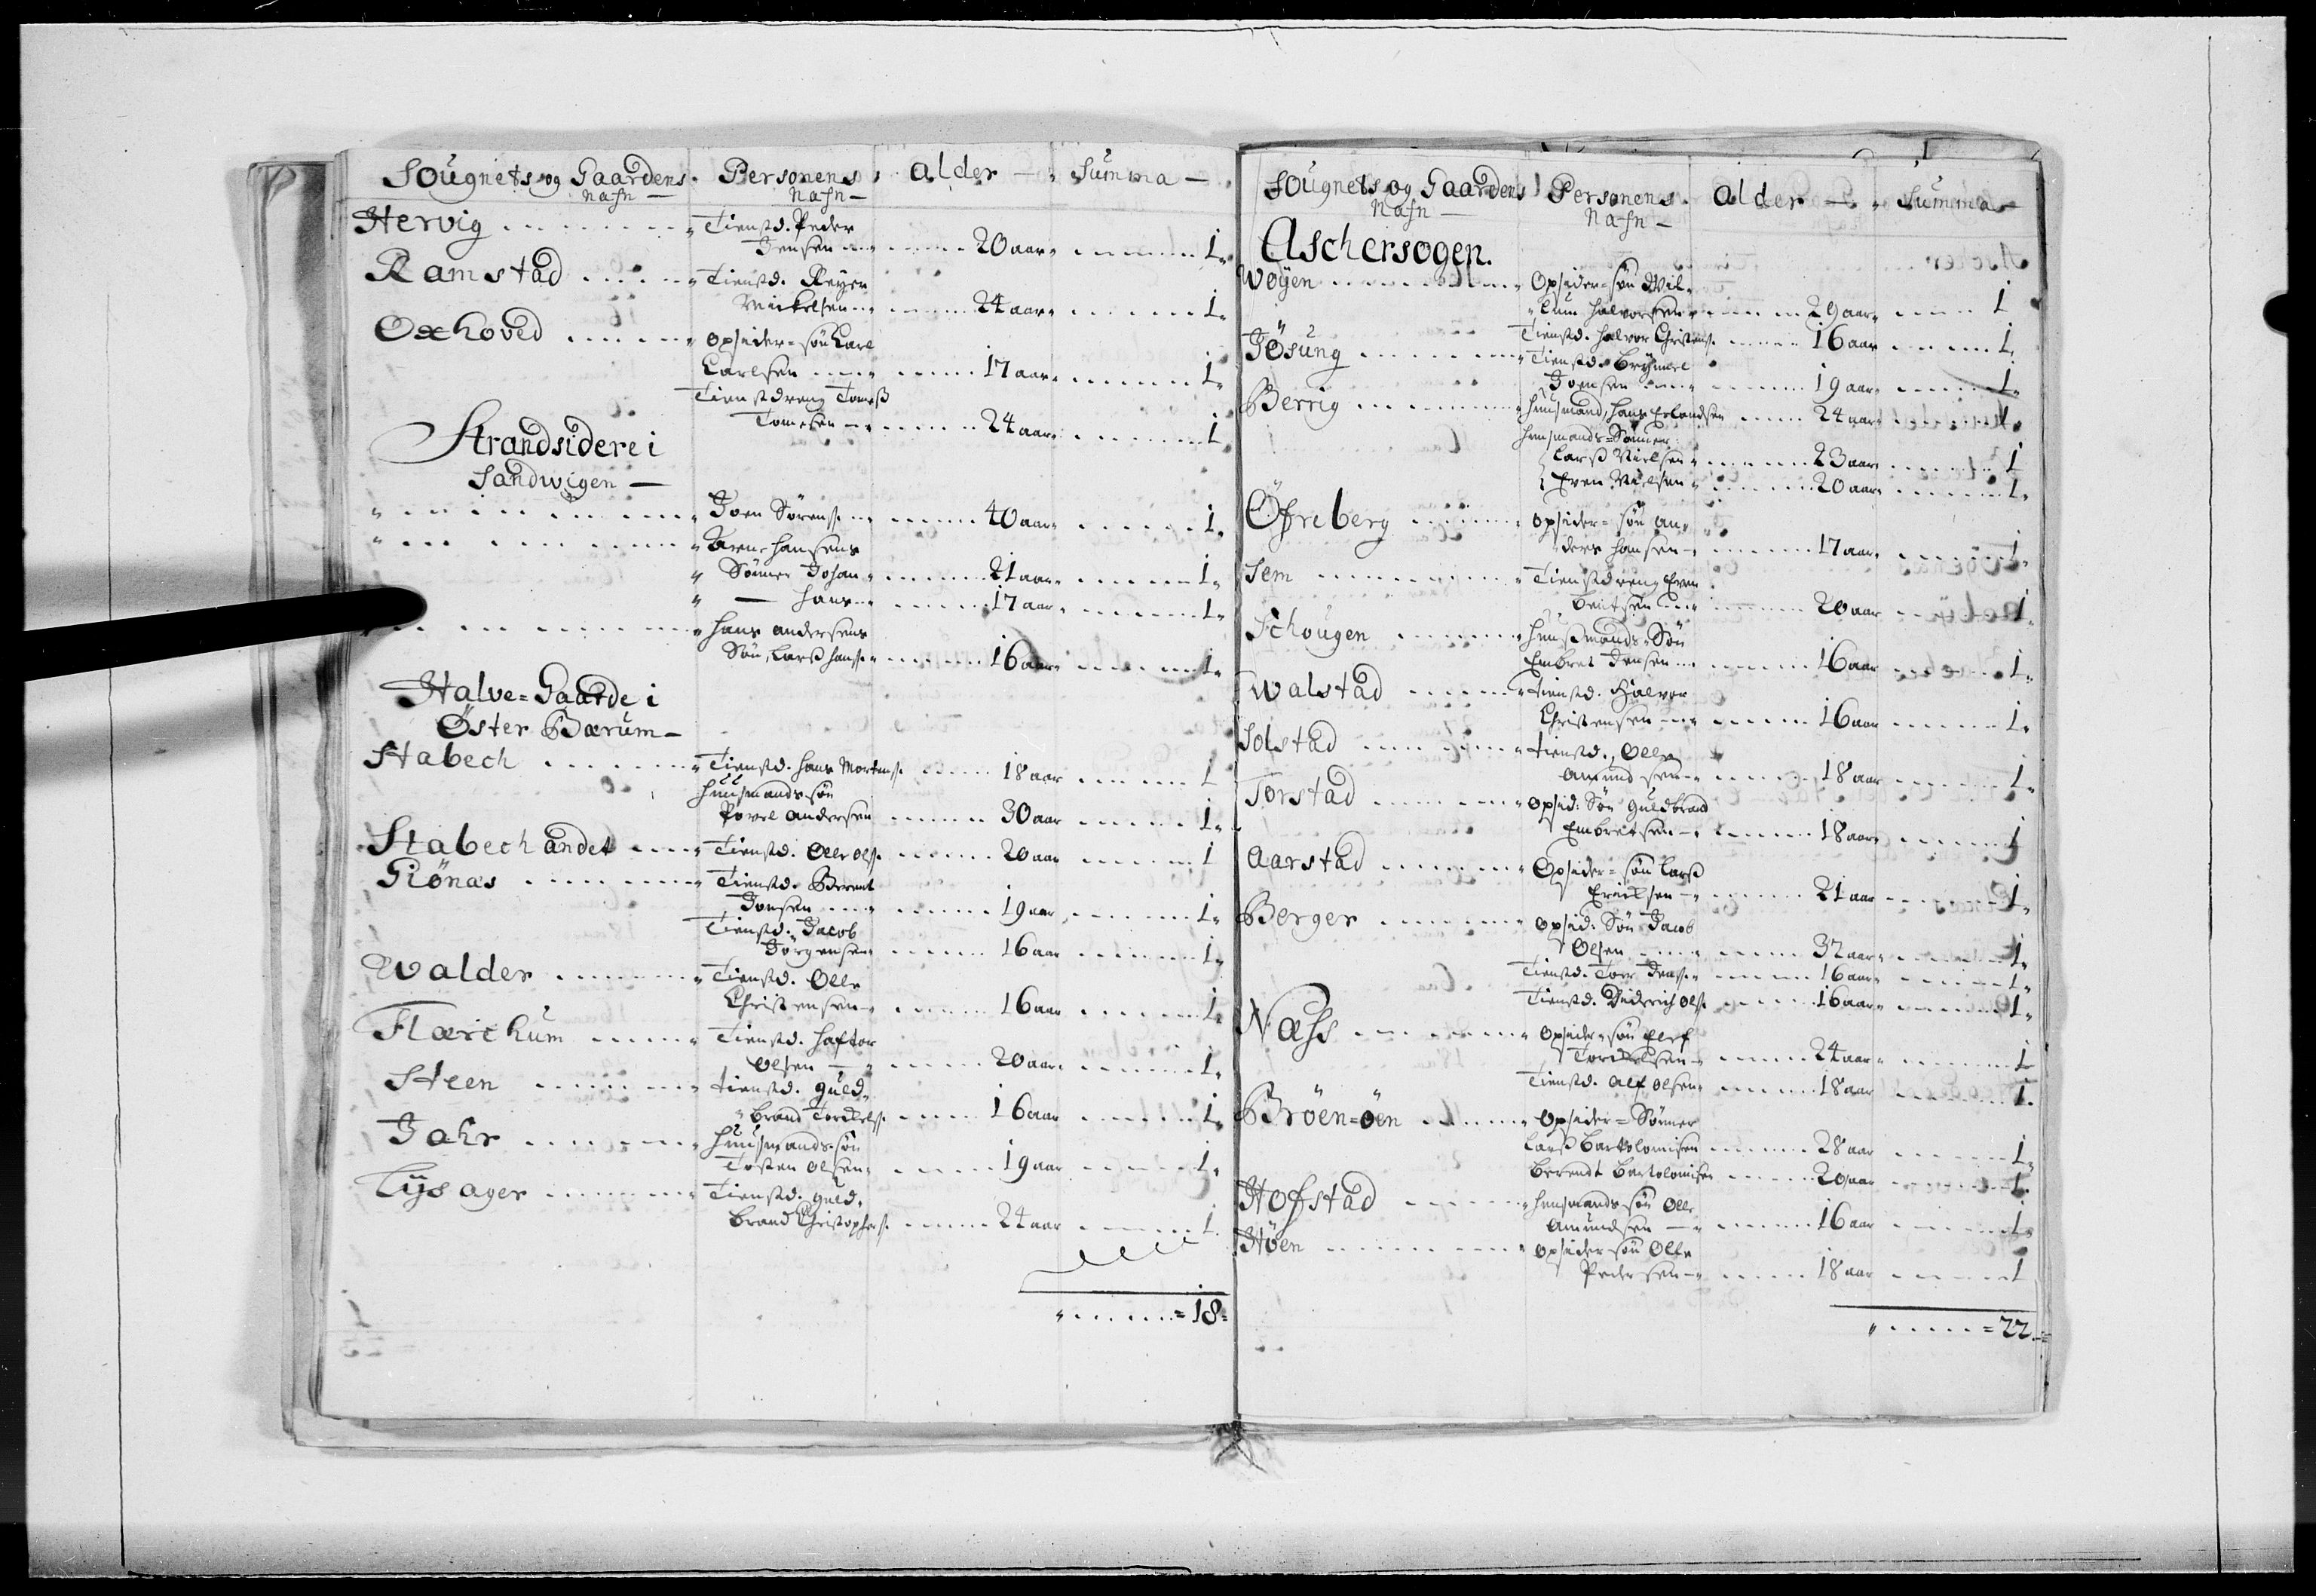 Sougnets og Gaardens Nafn — Personens Nafn — alder — Summa —
Hervig Tienstd. Peder
Jensen 20 aar 1
Ramstad Tienstd. Reyer
Mickelsen 24 aar 1
Oxhoved opsider-søn Carl
Carlsen 17 aar 1
Tienstdreng Tomeß
Tomesen 24 aar 1
Strandsidere i
Sandwigen —
Joen Sørens. 40 aar 1
Arne Hansens
Sönner Johan 21 aar 1
— Hans 17 aar 1
Hans Andersens
Søn, Larß Hans. 16 aar 1
Halve=Gaarde i
Öster Bærum —
Stabech Tienstd. Hans Mortens. 18 aar 1
Huusmands søn
Povel Andersen 30 aar 1
Stabech andet Tienstd. Olle Ols. 20 aar 1
Giönæs Tienstd. Berent
Jonsen 19 aar 1
Tienstd. Jacob
Jörgensen 16 aar 1
Walder Tienstd. Olle
Christensen 16 aar 1
Flærchum Tienstd. Haftor
Olsen 20 aar 1
Steen tienstd. Guld-
brand Torckels. 16 aar 1
Jahr Huusmands søn
Tosten Olsen 19 aar 1
Tijsager Tienstd. Guld-
brand Christophers. 24 aar 1
= 18 =
Sougnets og Gaardens Nafn — Personens Nafn — Alder — Summa —
Aschersogen.
Woÿen Opsider-søn Wil-
lum Halvorsen 29 aar 1
Tienstd. Halvor Christens. 16 aar 1
Jösung Tienstd. Brÿnnel
Joensen 19 aar 1
Berrig Huusmand, Hans Erlandsen 24 aar 1
Huusmands=Sønner
Larß Nielsen 23 aar 1
Even Nielsen 20 aar 1
Öfreberg opsider=søn An-
ders Hansen 17 aar 1
Sem Tienstdreng Even
Bentsen 20 aar 1
Schougen Huußmands=Søn
Embret Jensen 16 aar 1
Walstad tienstd. Halvor
Christensen 16 aar 1
Solstad tienstd. Olle
Amundsen 18 aar 1
Torstad opsid: Søn Guldbrand
Embretsen 18 aar 1
Aarstad Opsider=søn Larß
Ericksen 21 aar 1
Berger opsid: Søn Jacob
Olsen 32 aar 1
Tienstd. Tor Jens. 16 aar 1
Tienstd. Diderich Ols. 16 aar 1
Næss Opsider søn Elef
Torckelsen 24 aar 1
Tienstd. Alf Olsen 18 aar 1
Bröen=öen Opsider=Sønner
Larß Bartolomisen 28 aar 1
Berendt Bartolomisen 20 aar 1
Hofstad Huusmands søn Olle
Amundsen 16 aar 1
Höen opsider søn Olle
Pedersen 18 aar 1
= 22 =